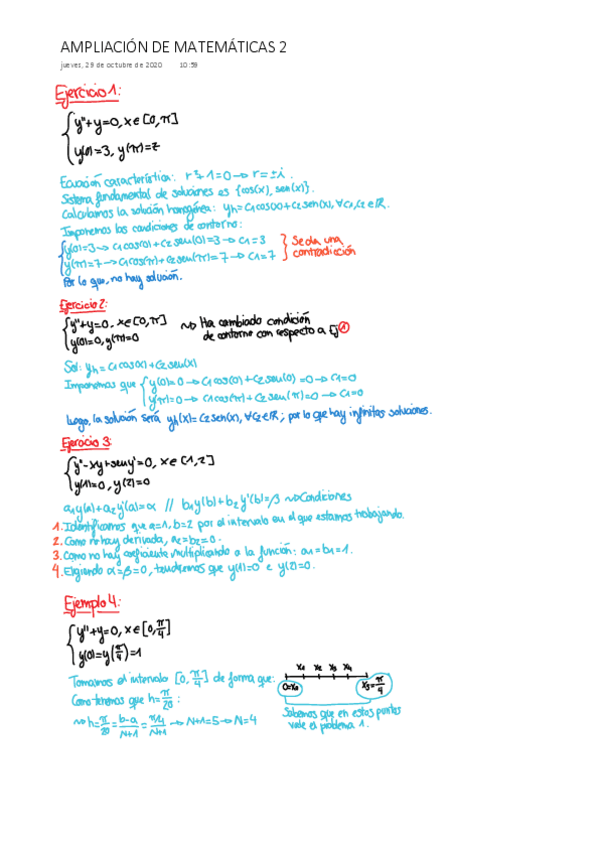 AMPLIACIÓN DE MATEMÁTICAS 2
jueves, 29 de octubre de 2020 10:59
Ejercicio 1:
y''+y=0, x∈[0,π]
y(0)=3, y(π)=7
Ecuación característica: r²+1=0→r=±i.
Sistema fundamental de soluciones es {cos(x), sen(x)}.
Calculamos la solución homogénea: yh=c1cos(x)+c2sen(x), ∀c1,c2∈ℝ.
Imponemos las condiciones de contorno:
y(0)=3→c1cos(0)+c2sen(0)=3→c1=3
y(π)=7→c1cos(π)+c2sen(π)=7→c1=7
Se da una
contradicción
Por lo que, no hay solución.
Ejercicio 2:
y''+y=0, x∈[0,π]
y(0)=0, y(π)=0
⇝ Ha cambiado condición
de contorno con respecto a Ej 1
Sol: yh=c1cos(x)+c2sen(x)
Imponemos que y(0)=0→c1cos(0)+c2sen(0)=0→c1=0
y(π)=0→c1cos(π)+c2sen(π)=0→c1=0
Luego, la solución será yh(x)=c2sen(x), ∀c2∈ℝ; por lo que hay infinitas soluciones.
Ejercicio 3:
y''-xy+seny'=0, x∈[1,2]
y(1)=0, y(2)=0
a1y(a)+a2y'(a)=α // b1y(b)+b2y'(b)=β ⇝Condiciones
1. Identificamos que a=1, b=2 por el intervalo en el que estamos trabajando.
2. Como no hay derivada, a2=b2=0.
3. Como no hay coeficiente multiplicando a la función: a1=b1=1.
4. Eligiendo α=β=0, tendremos que y(1)=0 e y(2)=0.
Ejemplo 4:
y''+y=0, x∈[0,π/4]
y(0)=y(π/4)=1
Tomamos el intervalo [0,π/4] de forma que:
x1 x2 x3 x4
0=x0 x5=π/4
Como tenemos que h=π/20:
⇝h=π/20=b-a/N+1=π/4/N+1→N+1=5→N=4
Sabemos que en estos puntos
vale el problema 1.